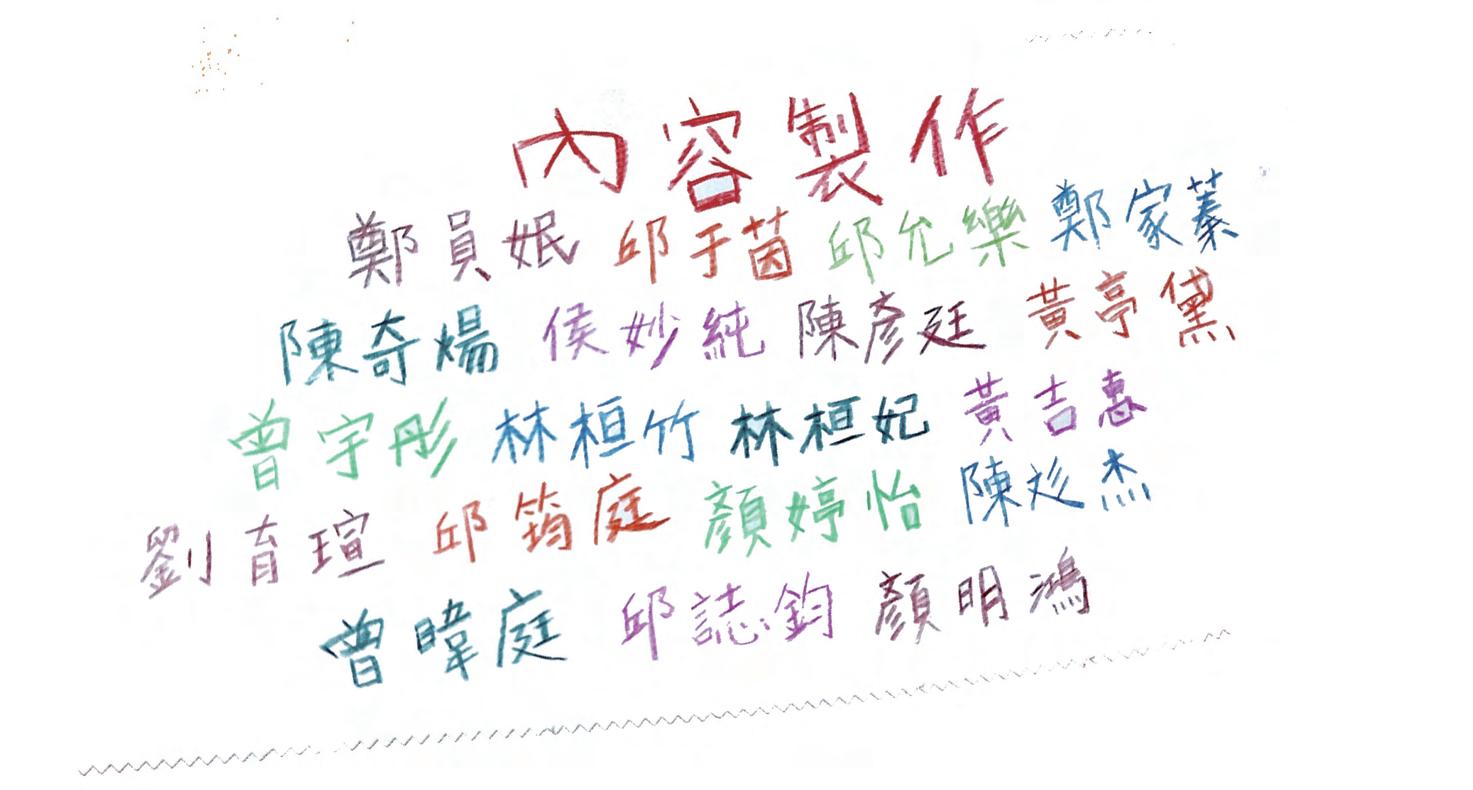 內容製作
鄭員姄 邱于茵 邱允樂 鄭家蓁
陳奇煬 侯妙純 陳彥廷 黃亭黛
曾宇彤 林桓竹 林桓妃 黃吉惠
劉育瑄 邱筠庭 顏婷怡 陳彣杰
曾暐庭 邱誌鈞 顏明鴻